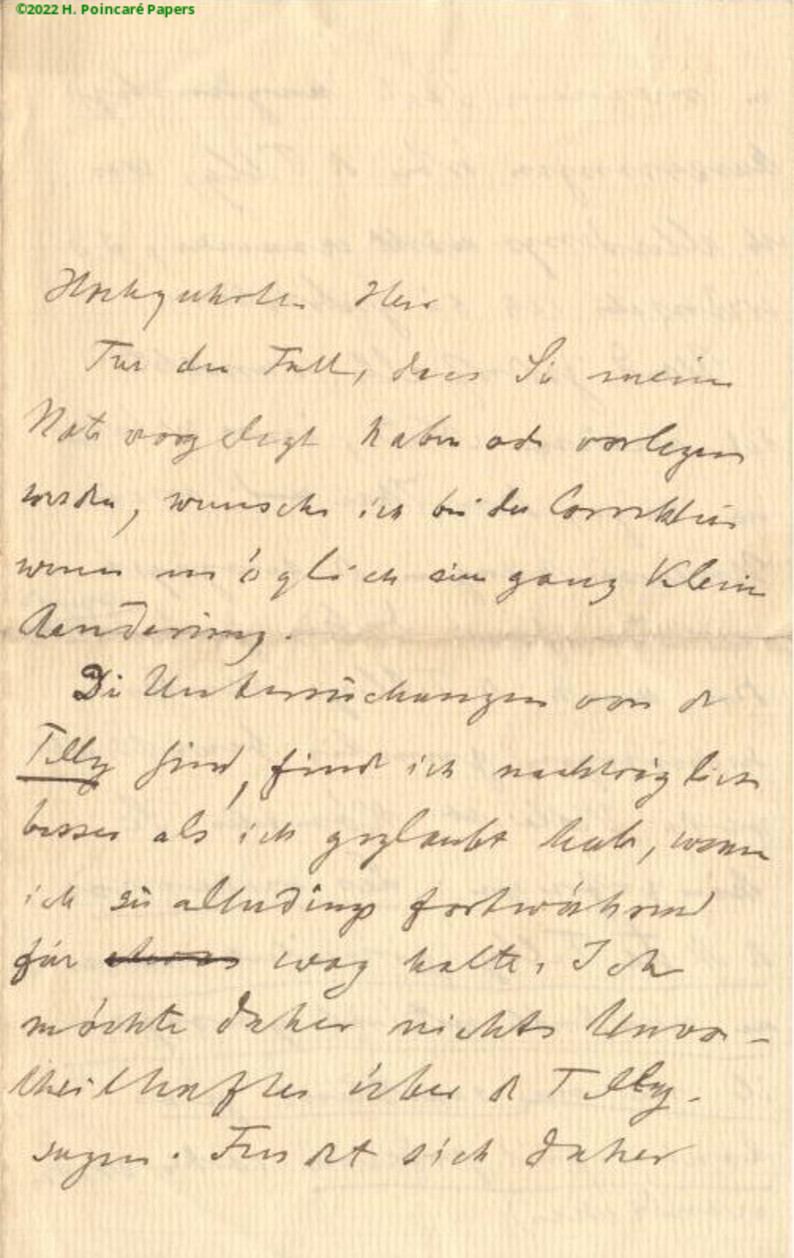 ©2022 H. Poincaré Papers
Hochgeehrter Herr
Für den Fall, dass Sie meine
Note vorgelegt haben oder vorlegen
werden, wünsche ich bei der Correktur
wenn möglich eine ganz kleine
Aenderung.
Die Untersuchungen von de
Tilly sind, finde ich nachträglich
besser als ich geglaubt habe, wenn
ich sie allerdings fortwährend
für etwas vag halte. Ich
möchte daher nichts Unvor-
theilhaftes über de Tilly
sagen. Findet sich daher